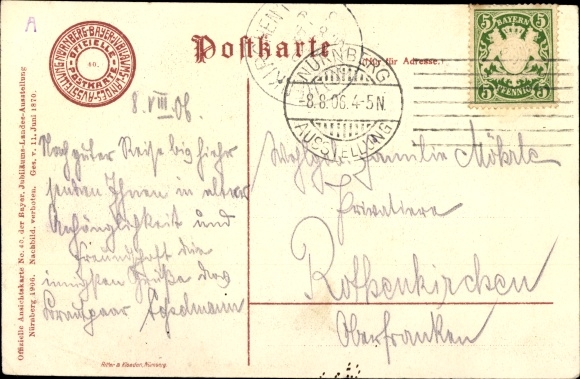 A
NÜRNBERG·BAYER·JUBILÄUMS·LANDES·AUSSTELLUNG
OFFICIELLE
40.
POSTKARTE
Postkarte
(Nur für Adresse.)
NÜRNBERG
-8.8.06.4-5N.
AUSSTELLUNG
5 BAYERN 5
5 PFENNIG 5
Offizielle Ansichtskarte No. 40. der Bayer. Jubiläums-Landes-Ausstellung
Nürnberg 1906. Nachbild. verboten. Ges. v. 11. Juni 1870.
8.VIII.06.
Nach guter Reise bis hierher
senden Ihnen in alter
Anhänglichkeit und
Freundschaft die
innigsten Grüße das
Brautpaar
Wohlgeb. Familie Möhrle
Privatiere
Rothenkirchen
Oberfranken
Ritter & Kloeden, Nürnberg.